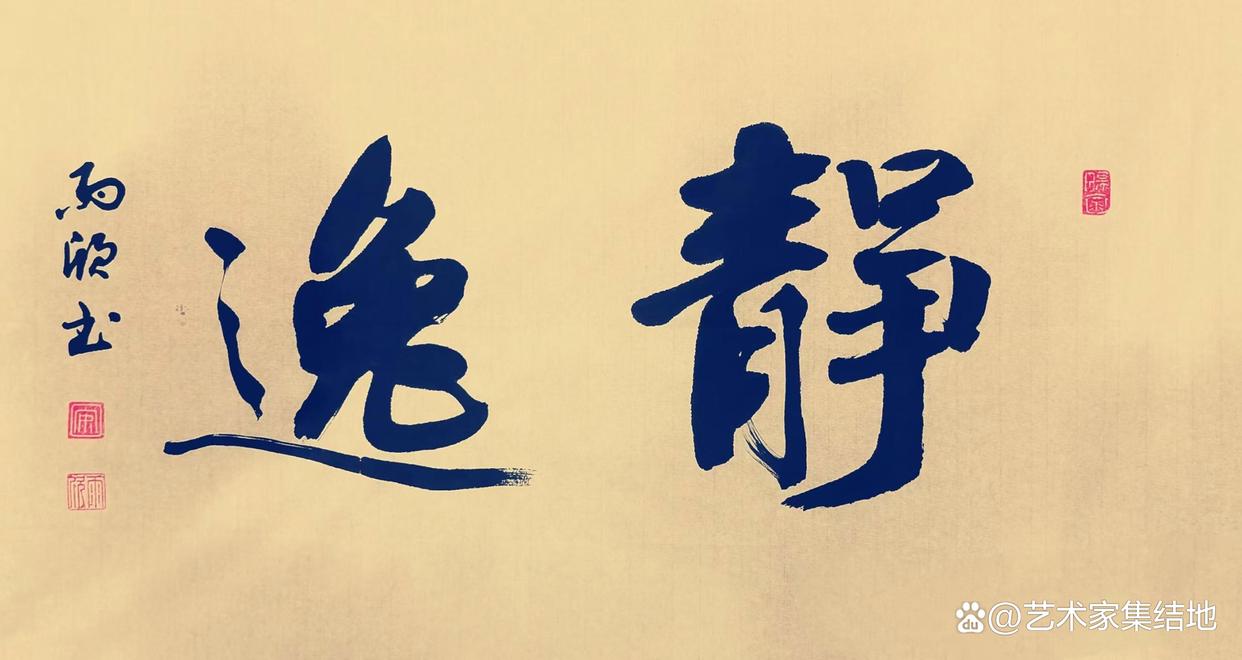 靜逸
雨欣书
@艺术家集结地